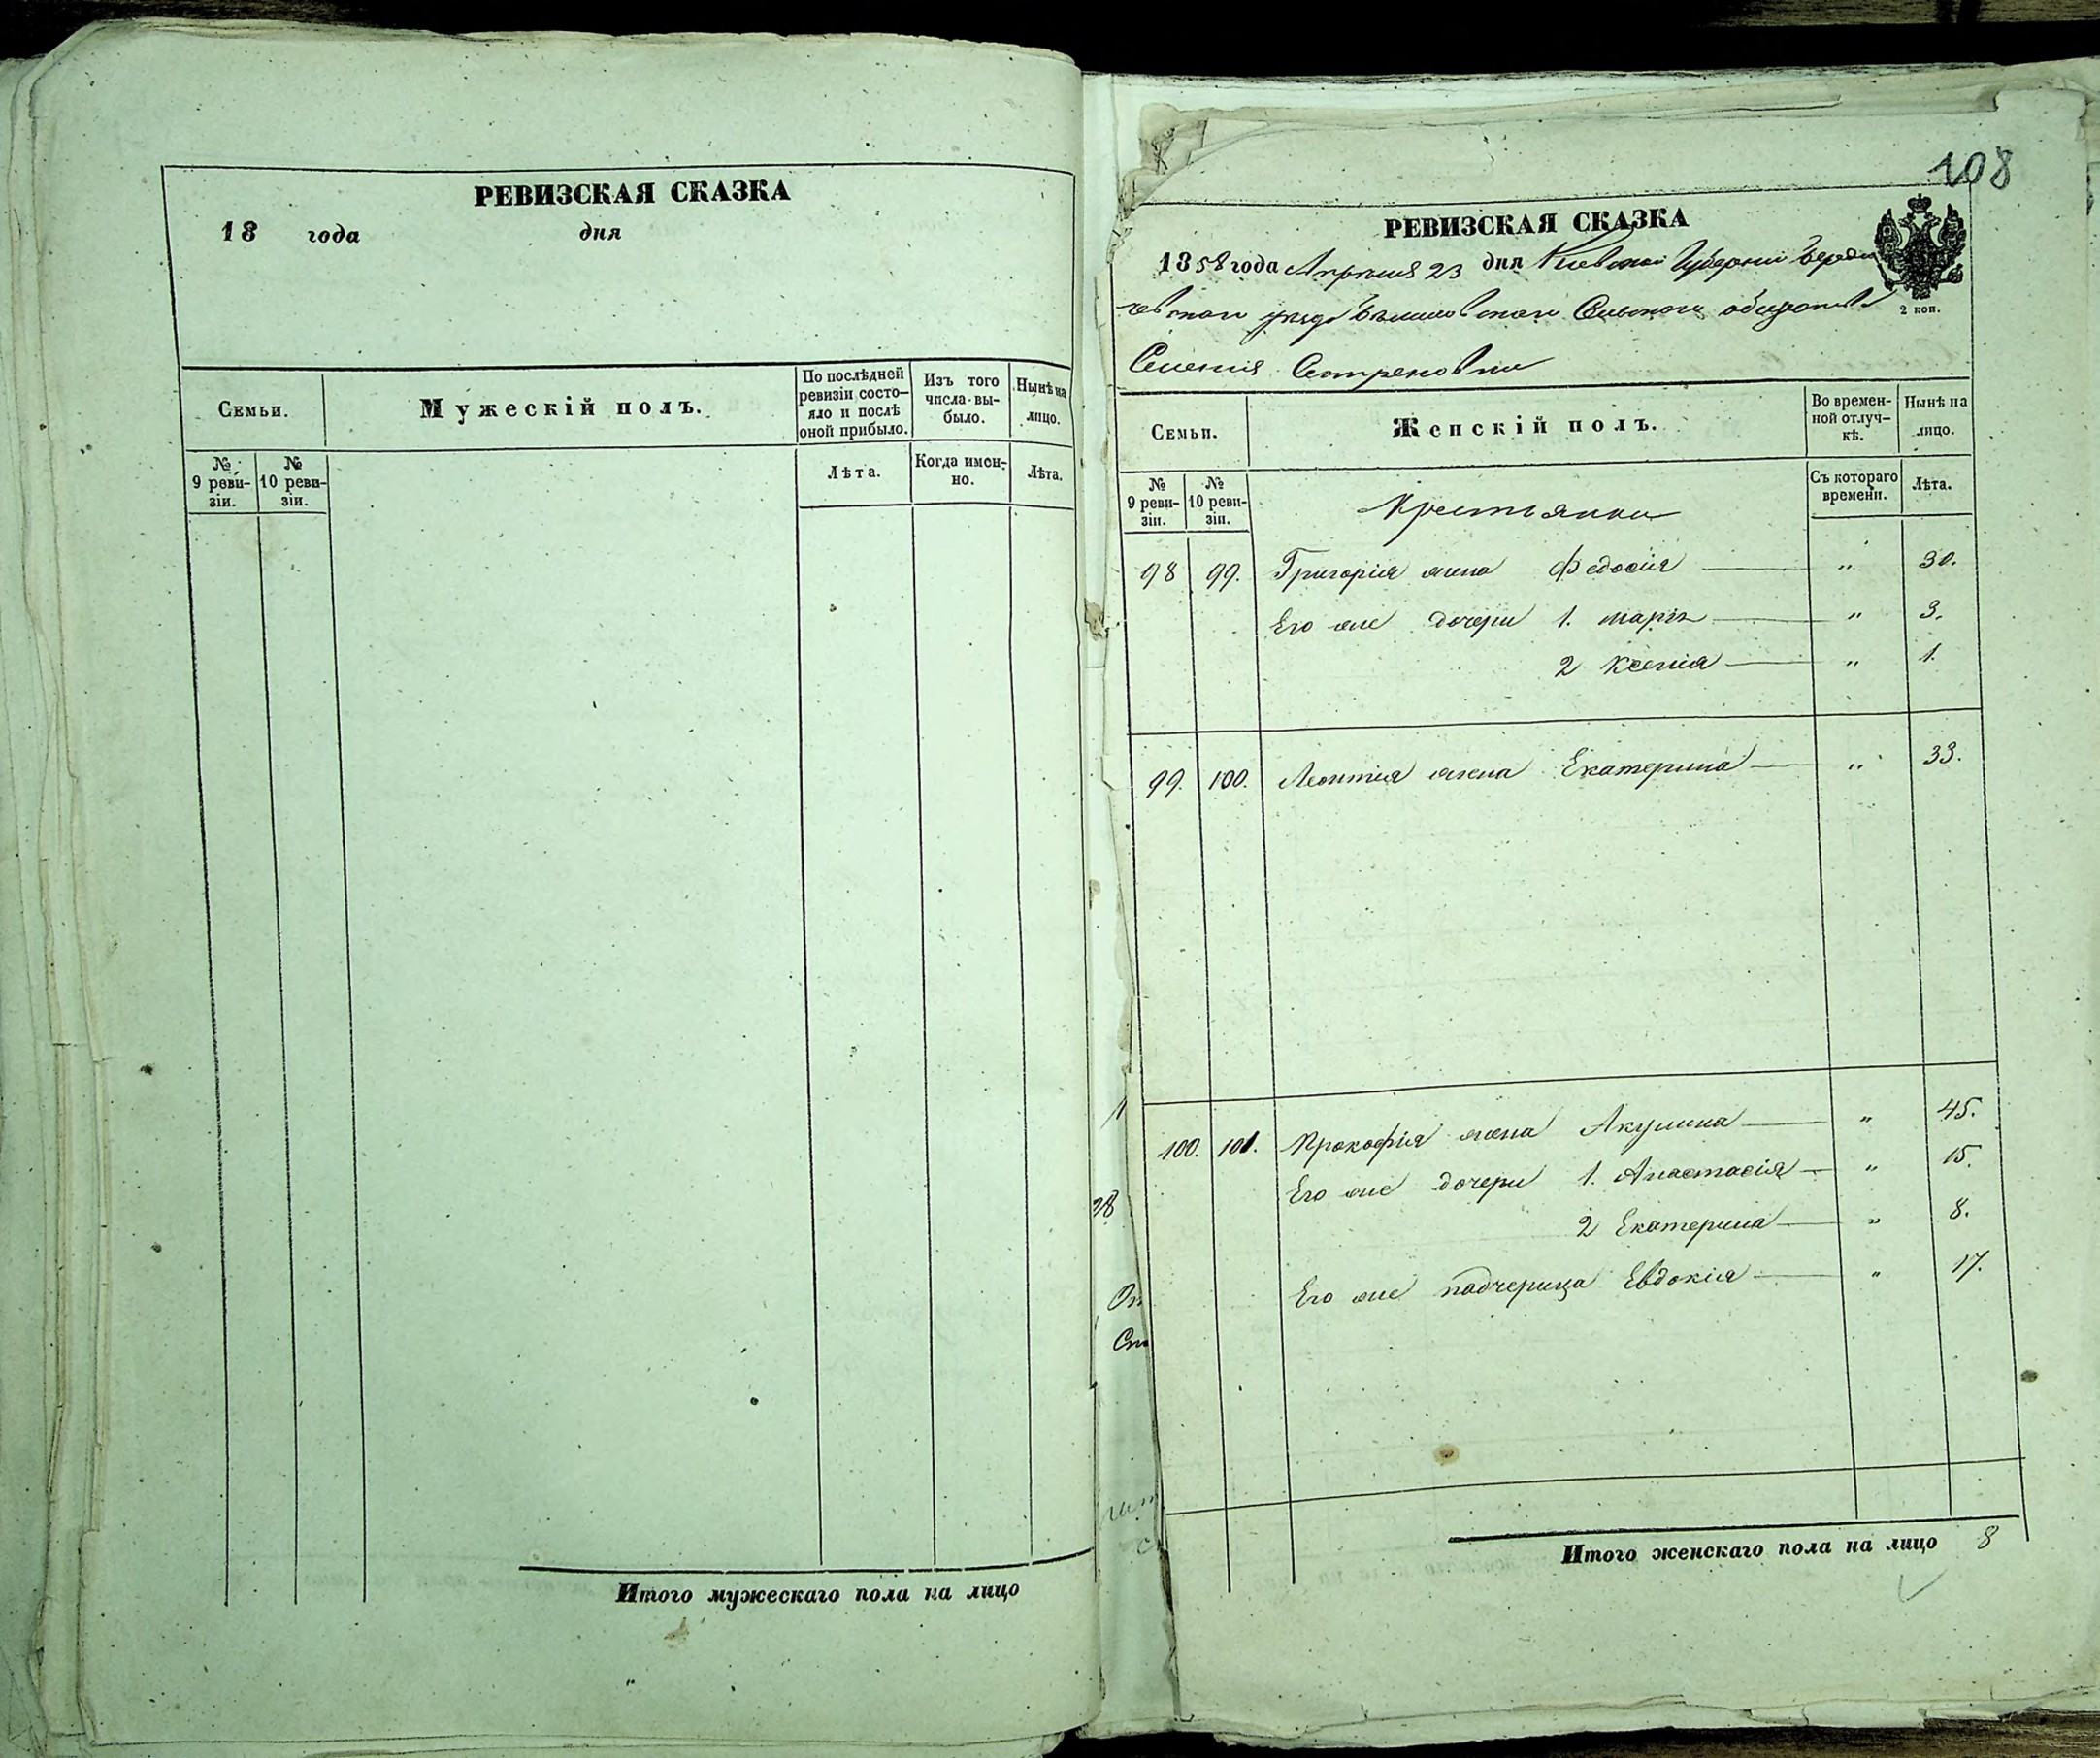 РЕВИЗСКАЯ СКАЗКА
18 года дня
Семьи.
Мужескій полъ.
По послѣдней ревизіи состояло и послѣ оной прибыло.
Изъ того числа выбыло.
Нынѣ на лицо.
№ 9 ревизіи.
№ 10 ревизіи.
Лѣта.
Когда именно.
Лѣта.
Итого мужескаго пола на лицо
108
РЕВИЗСКАЯ СКАЗКА
1858 года Апреля 23 дня Киевской Губернии Берди
чевского уезда Сельского общества
2 коп.
Селения
Семьи.
Женскій полъ.
Во временной отлучкѣ.
Нынѣ на лицо.
№ 9 ревизіи.
№ 10 ревизіи.
Крестьянки
Съ котораго времени.
Лѣта.
98 99. Григорія жена Федосія " 30.
Его же дочери 1. Марія " 3.
2 Ксенія " 1.
99. 100. Леонтія жена Екатерина " 33.
100. 101. Прокофія жена Акулина " 45.
Его же дочери 1. Анастасія " 15.
2 Екатерина " 8.
Его же падчерица Евдокія " 17.
28
Итого женскаго пола на лицо 8